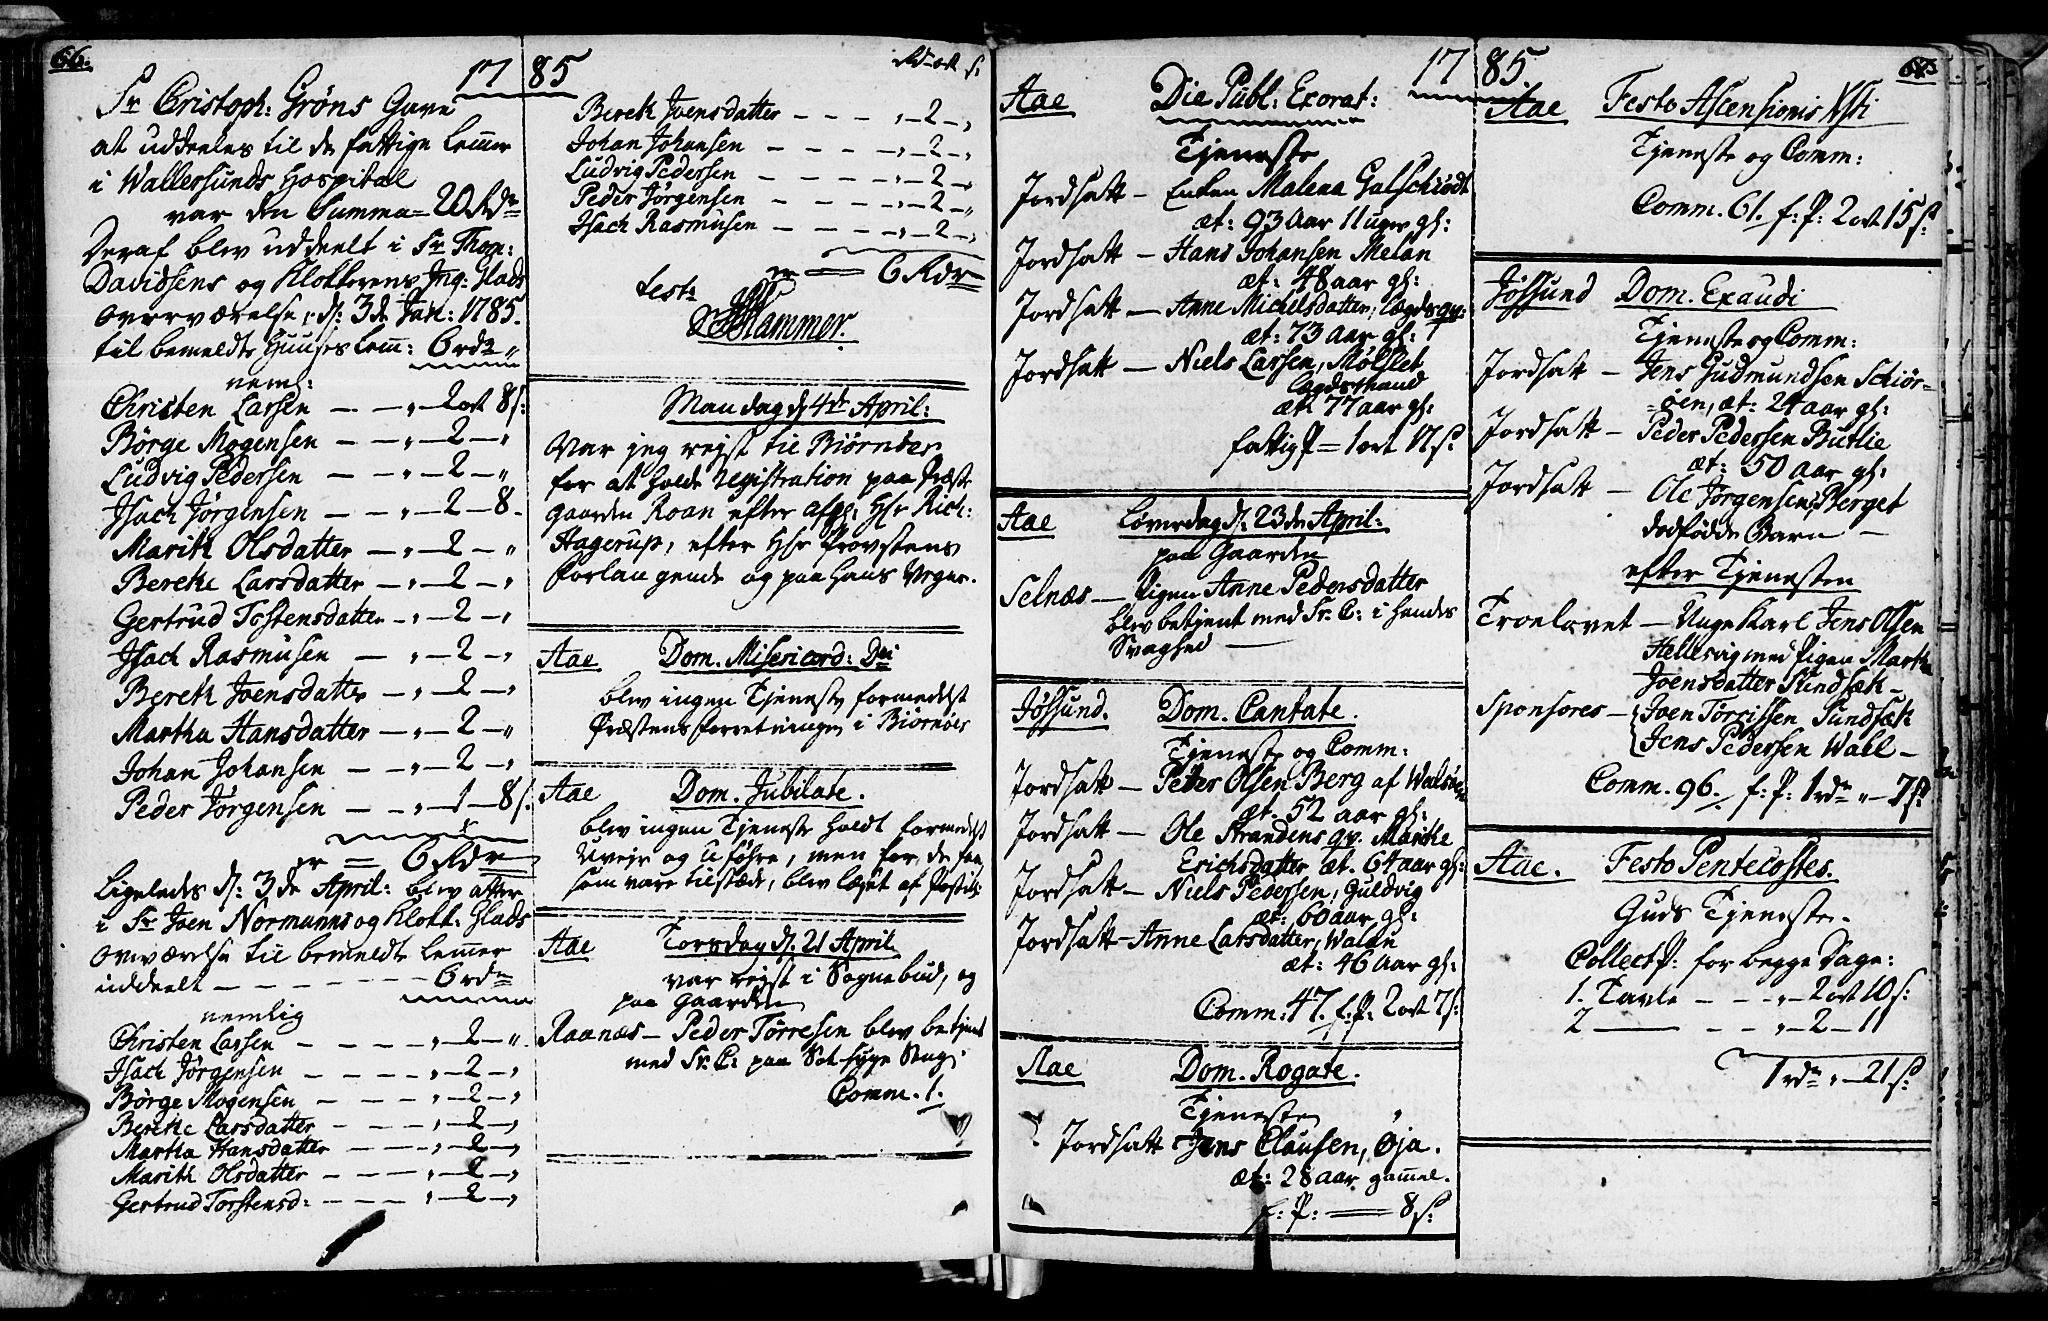 66.
17
Sr Cristoph: Gröns Gave
at uddeeles til de fattige Lemer
i Wallersunds Hospital
var den Summa = 20 Rdr
Deraf blev uddeelt i Sr Thom:
Davidsens og Klokkerens Ing: Glads
Overværelse, d: 3de Jan: 1785.
til bemeldte Huuses Lem: 6 rdr „
neml:
Christen Larsen — — „ — 2 ort 8 s:
Börge Mogensen — — „ — 2 — „
Ludvig Pedersen — — „ — 2 — „
Isach Jörgensen — — „ — 2 — 8.
Marith Olsdatter — „ — 2 — „
Berethe Larsdatter — „ — 2 — „
Gertrud Tostensdatter — „ — 2 — „
Isach Rasmusen — „ — 2 — „
Bereth Joensdatter — „ — 2 — „
Martha Hansdatter — „ — 2 — „
Johan Johansen — — „ — 2 — „
Peder Jörgensen — — „ — 1 — 8 s.
er = 6 Rdr
Ligeledes d: 3de April: blev atter
i Sr Joen Normanns og Klokk: Glads
Overværelse til bemeldte Lemer
uddeelt — — — — — — 6 rdr
nemlig
Christen Larsen — — — — „ — 2 — „
Isach Jörgensen — — — — „ — 2 — „
Börge Mogensen — — — „ — 2 — „
Berethe Larsdatter — — — „ — 2 — „
Martha Hansdatter — — — „ — 2 — „
Marith Olsdatter — — — „ — 2 — „
Gertrud Torstensd: — — — „ — 2 — „
85
Rd — ort s:
Bereth Joensdatter — — — „ — 2 — „
Johan Johansen — — — — „ — 2 — „
Ludvig Pedersen — — — — „ — 2 — „
Peder Jörgensen — — — — „ — 2 — „
Isach Rasmusen — — — — „ — 2 — „
er = 6 Rdr
test:
Hammer.
Mandag d: 4de April:
Var jeg rejst til Biörnöer
for at holde Registration paa Præste
gaarden Roan efter afg: Hr Rich:
Hagerup, efter Hr Provstens
forlangende og paa Hans Vegne.
Aae Dom. Misericord: Dni
blev ingen Tjeneste formedelst
Præstens forretninger i Biörnöer
Aae Dom. Jubilate.
blev ingen Tjeneste holdt formedelst
Uvejr og Uföhre, men for de faa
som vare tilstæde, blev læset af Postil:
Aae Torsdag d: 21 April
var rejst i Sognebud, og
paa Gaarden
Raanæs — Peder Törresen blev betjent
med Sr. C: paa Sot-syge Seng:
Comm. 1.
17
Aae Die Publ: Exorat:
Tjeneste
Jordsatt — Enken Malena Galschiödt
æt: 93 Aar 11 uger gl:
Jordsatt — Hans Johansen Melan
æt: 48 aar gl:
Jordsatt — Anne Michelsdatter, Lægdsqv:
æt: 73 aar gl:
Jordsatt — Niels Larsen, Mölslet
Lægdsmand
æt 77 aar gl:
fattig P = 1 ort 17 s:
Aae Löverdag d: 23de April:
paa Gaarden
Selnæs — Pigen Anne Pedersdatter
blev betjent med Sr: C: i Hendes
Svaghed —
Jössund. Dom. Cantate.
Tjeneste og Comm:
Jordsatt — Peter Olsen Berg af Walsöen
æt. 52 aar gl:
Jordsatt — Ole Strandens qv. Marthe
Erichsdatter æt. 64 aar gl:
Jordsatt — Niels Pedersen, Guldvig
æt: 60 aar gl:
Jordsatt — Anne Larsdatter, Walöe
æt: 46 Aar gl:
Comm: 47. f: P. 2 ort 7 s:
Aae Dom. Rogate.
Tjeneste
Jordsatt Jens Clausen, Oja.
æt: 28 aar gamel.
f: P: — 8 s:
85.
Aae Festo Ascensionis Xsti
Tjeneste og Comm:
Comm. 61. f: P: 2 ort 15 s:
Jössund Dom. Exaudi
Tjeneste og Comm:
Jordsatt — Jens Gudmundsen Schiör-
öen, æt: 24 aar gl:
Jordsatt — Peder Pedersen Butlie
æt: 50 aar gl:
Jordsatt — Ole Jörgensens, Berget
dödfödde Barn —
efter Tjenesten
Troelovet — Unge Karl Jens Olsen
Hellesvig med Pigen Marth
Joensdatter Sundsæt —
Sponsores — Joen Törrissen Sundsæt
Jens Pedersen Wall —
Comm. 96. f: P: 1 rdr „ — 7 s:
Aae. Festo Pentecostes.
Guds Tjeneste.
Collect P: for begge Dage:
1. Tavle — — „ — 2 ort 10 s:
2 —— — — „ — 2 — 11
1 rdr „ — 21 s: